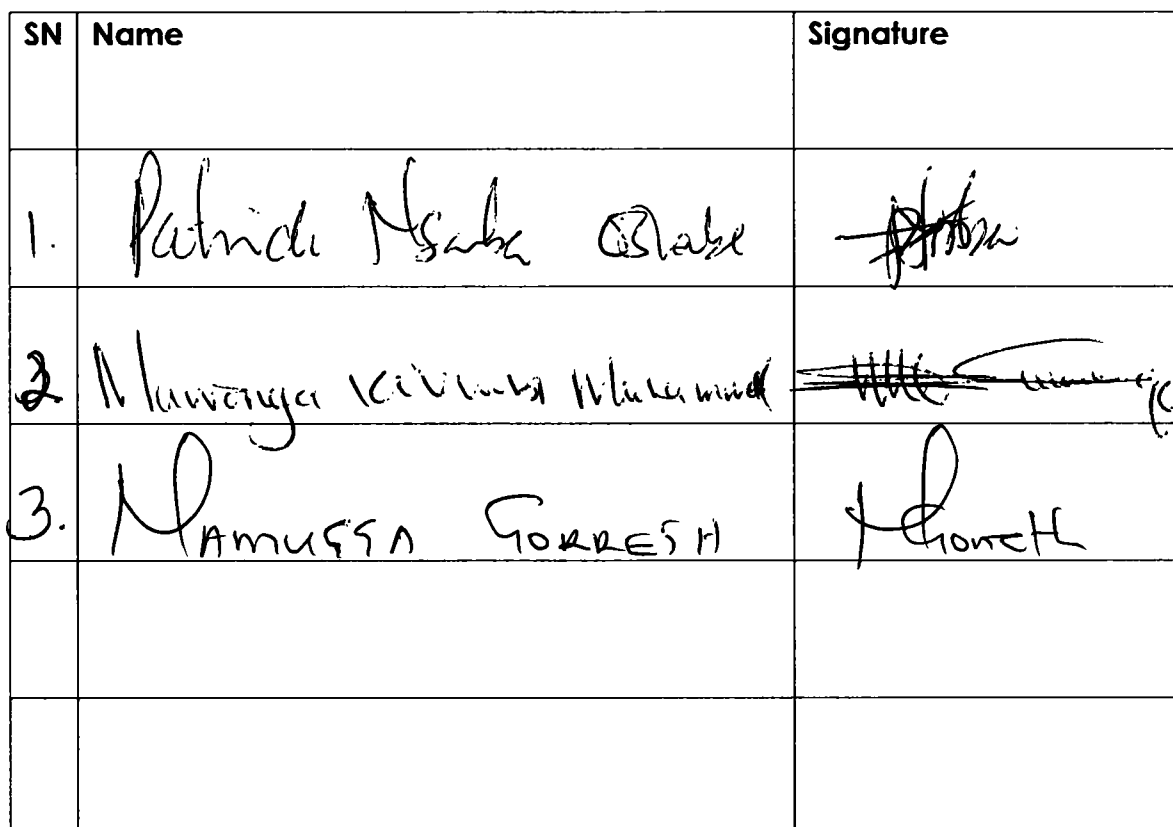 SN Name Signature
1. Patrick Nsamba Oshabe
2 Muwanga Kivumbi Muhammad
3. NAMUGGA GORRETH